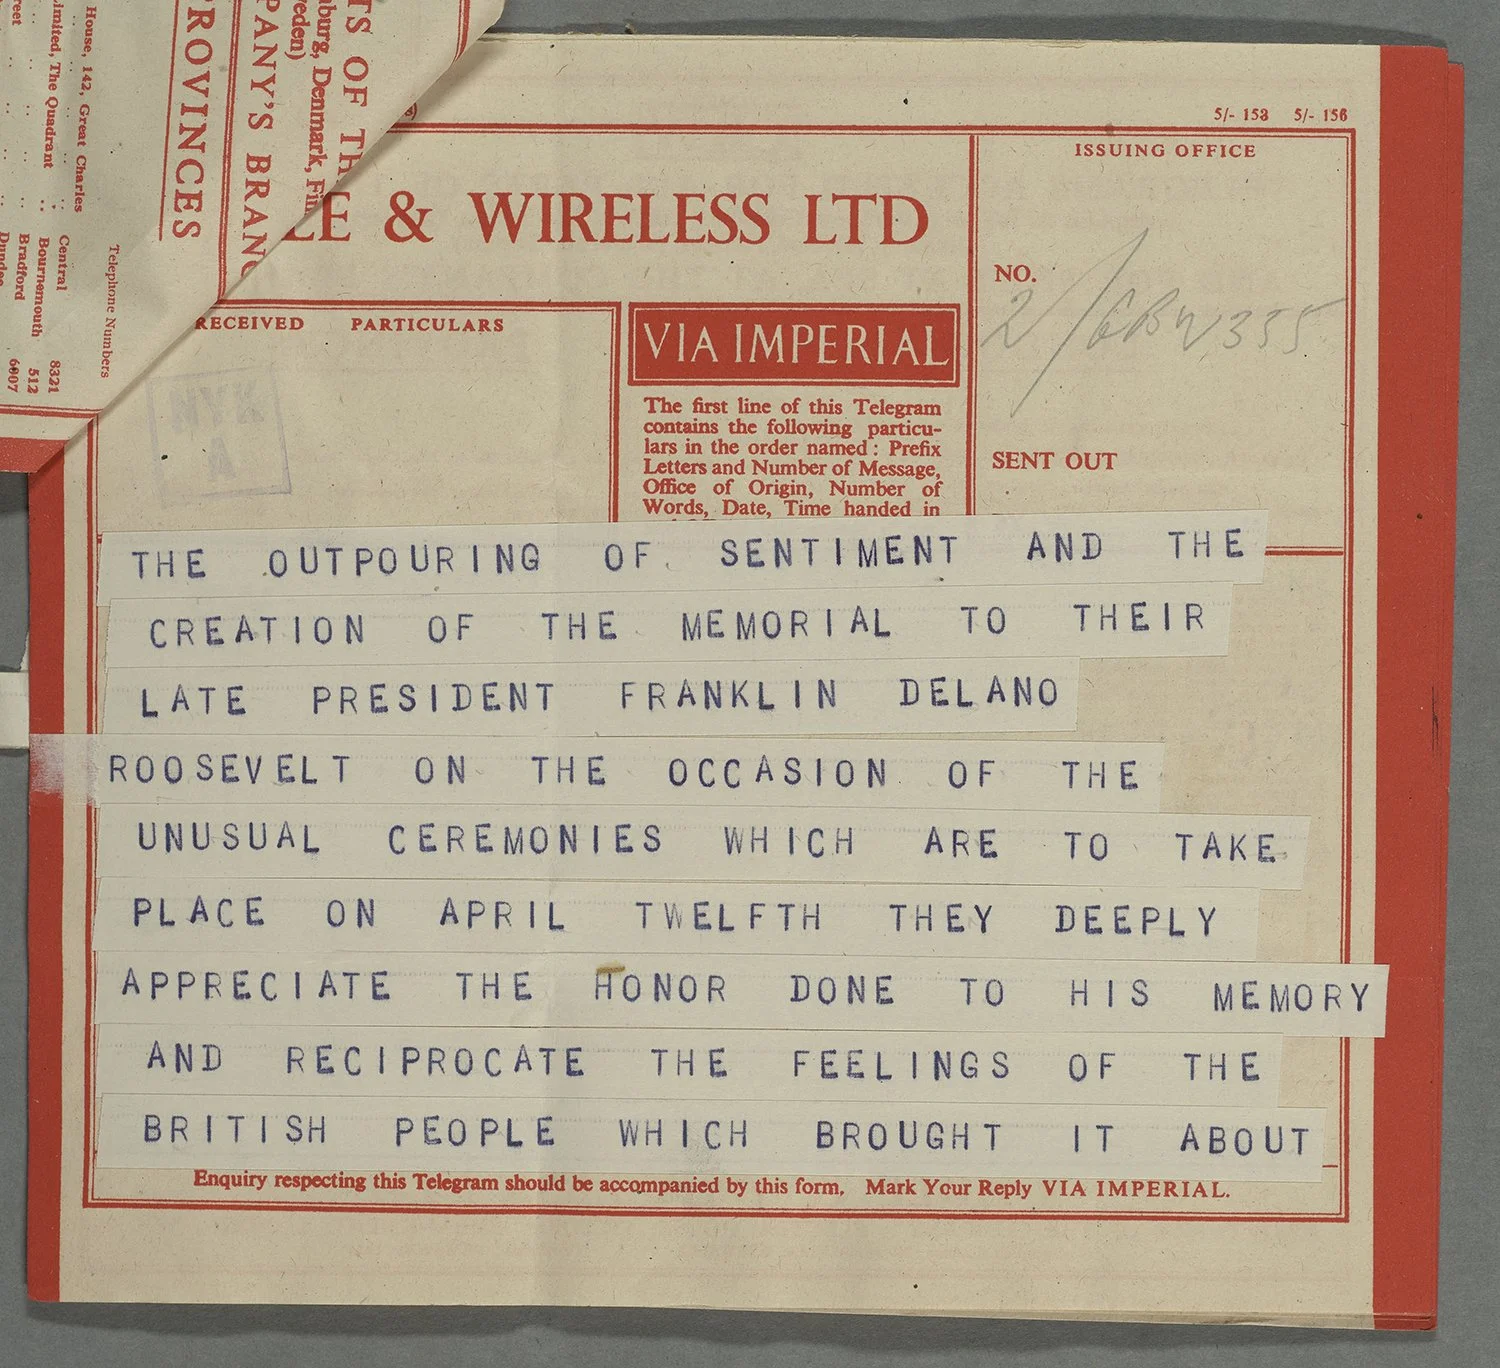 House, 142, Great Charles
Limited, The Quadrant
Telephone Numbers
Central 8321
Bournemouth 512
Bradford 6007
PROVINCES
PANY'S BRANC
TS OF TH
burg, Denmark, Fin
eden)
5/- 153 5/- 156
LE & WIRELESS LTD
ISSUING OFFICE
NO.
SENT OUT
RECEIVED PARTICULARS
NYK
A
VIA IMPERIAL
The first line of this Telegram
contains the following particu-
lars in the order named : Prefix
Letters and Number of Message,
Office of Origin, Number of
Words, Date, Time handed in
THE OUTPOURING OF SENTIMENT AND THE
CREATION OF THE MEMORIAL TO THEIR
LATE PRESIDENT FRANKLIN DELANO
ROOSEVELT ON THE OCCASION OF THE
UNUSUAL CEREMONIES WHICH ARE TO TAKE
PLACE ON APRIL TWELFTH THEY DEEPLY
APPRECIATE THE HONOR DONE TO HIS MEMORY
AND RECIPROCATE THE FEELINGS OF THE
BRITISH PEOPLE WHICH BROUGHT IT ABOUT
Enquiry respecting this Telegram should be accompanied by this form. Mark Your Reply VIA IMPERIAL.